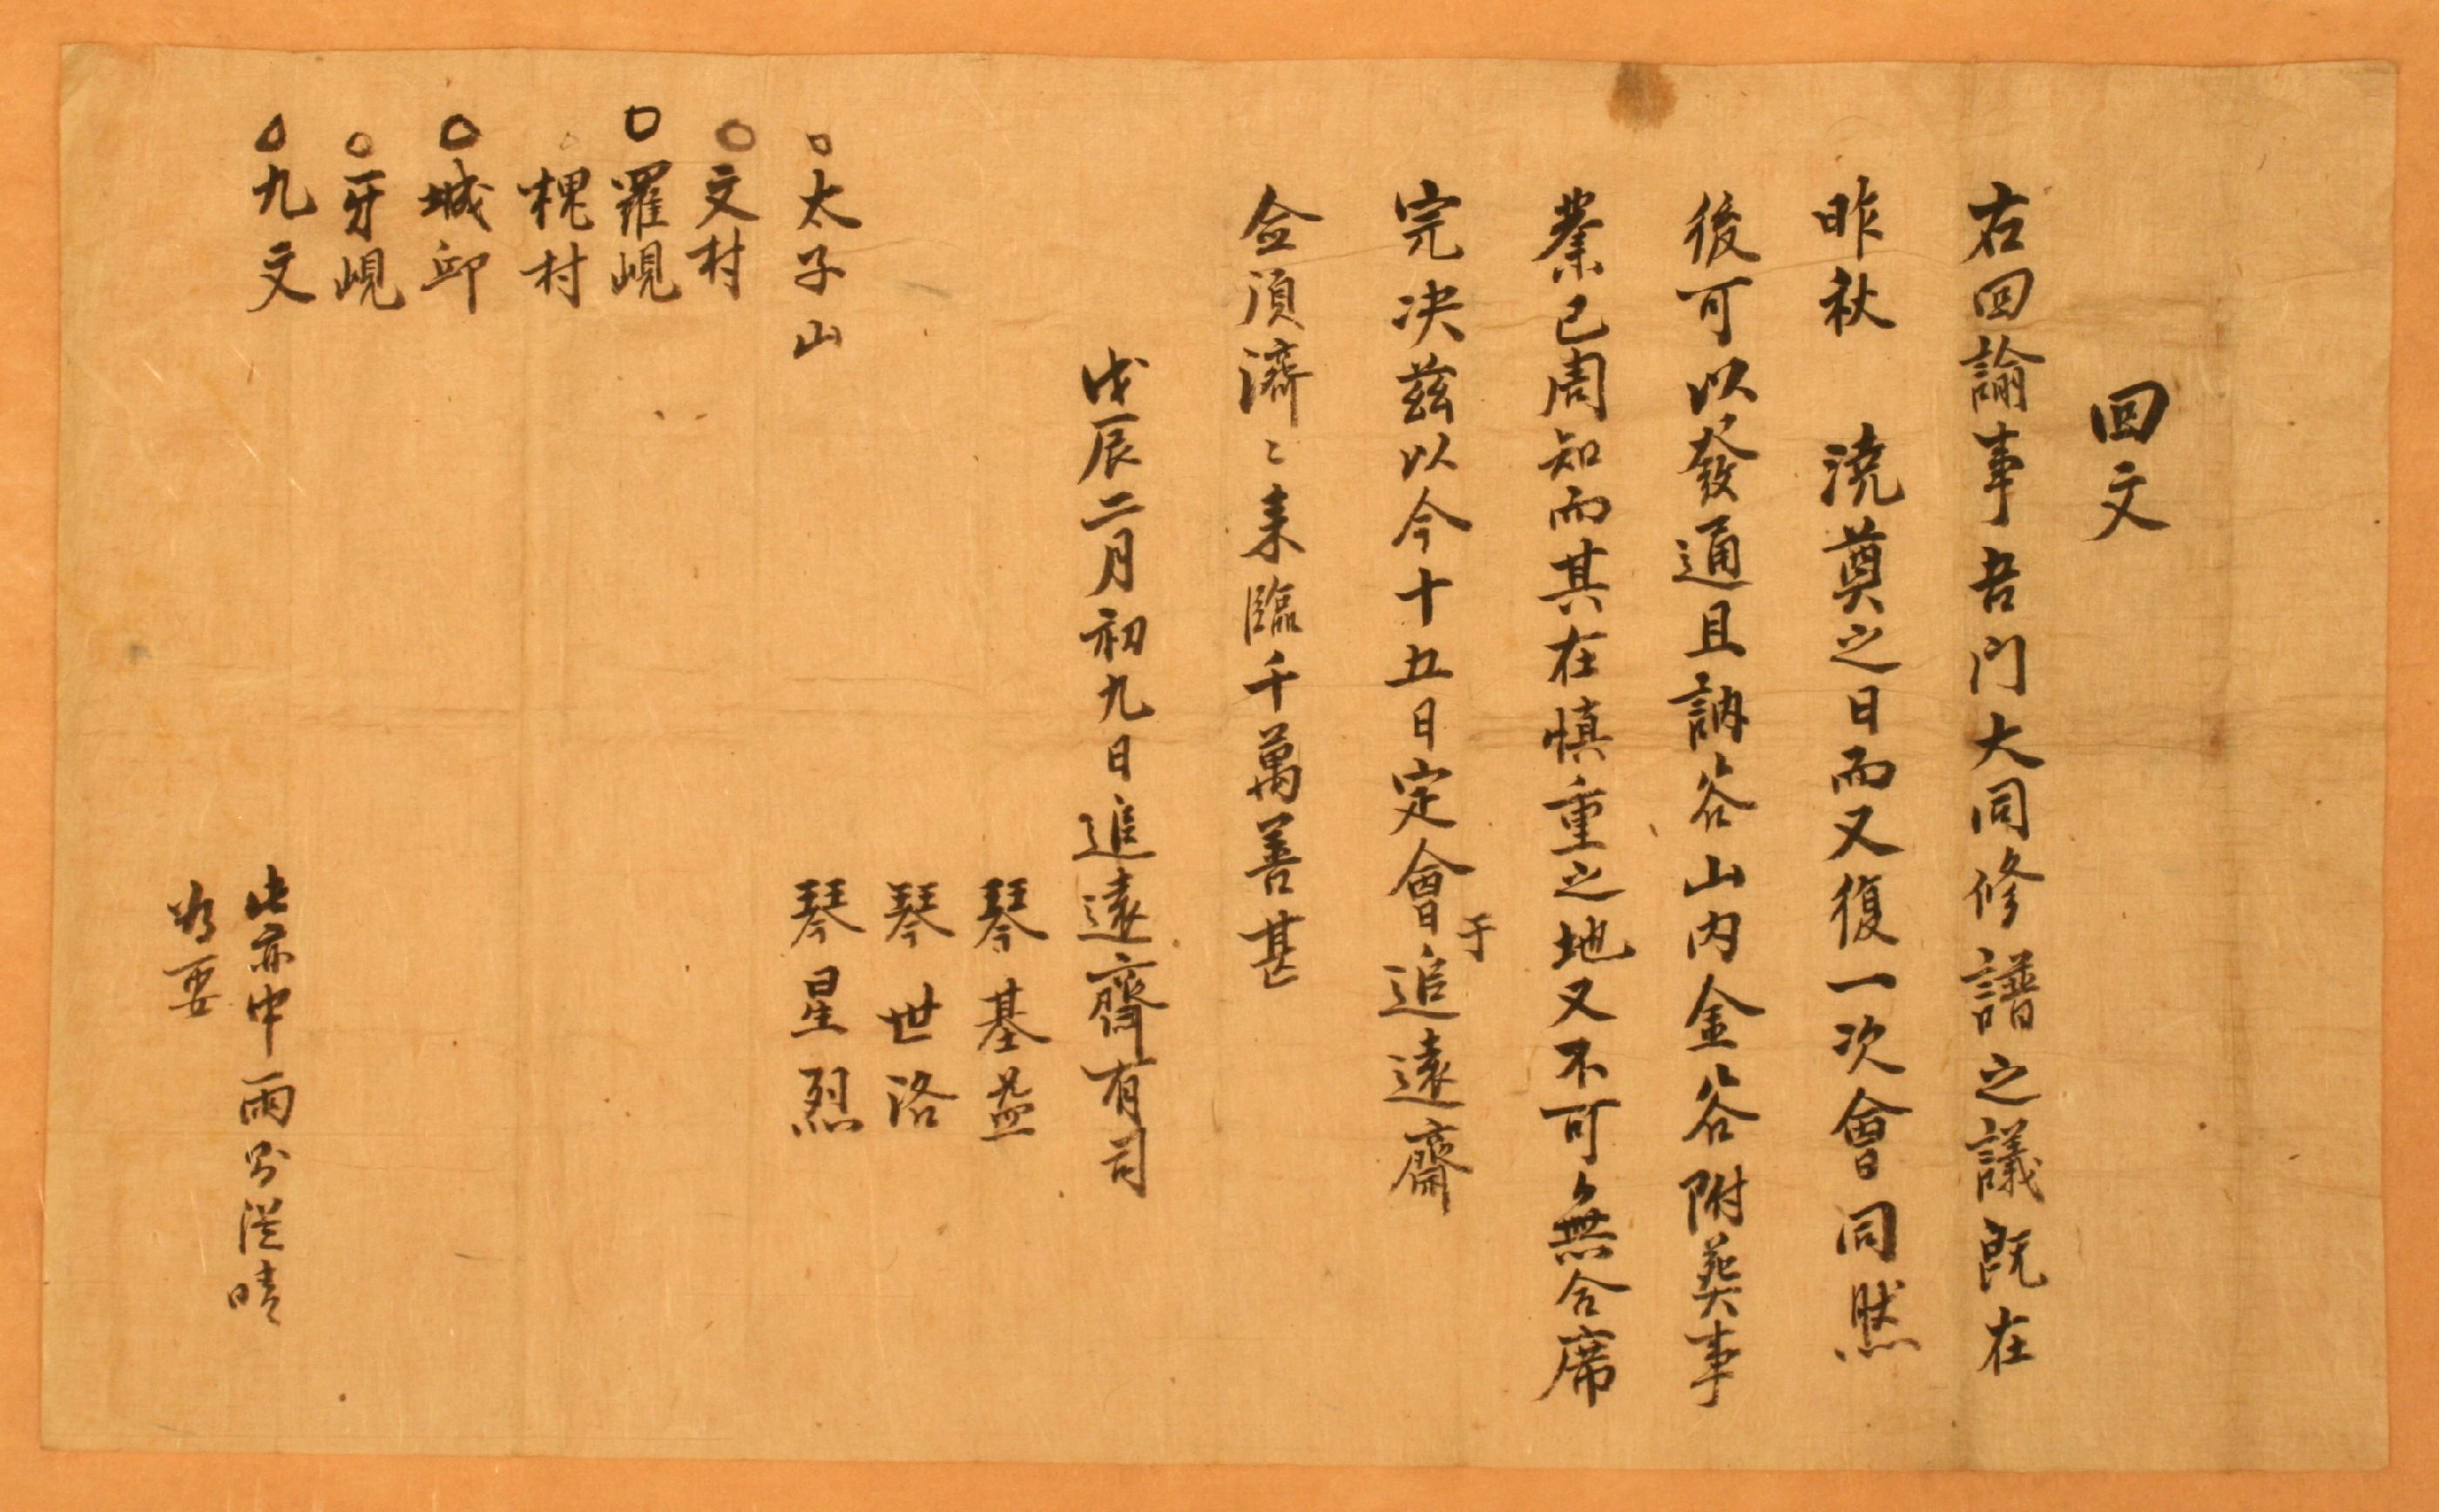 回文
右回諭事吾門大同修譜之議旣在
昨秋 澆奠之日而又復一次會同然
後可以發通且訥谷山內金谷附葬事
業已周知而其在愼重之地又不可無合席
完決玆以今十五日定會于追遠齋
僉湏濟〻来臨千萬善甚
戊辰二月初九日追遠齋有司
琴基益
琴世洛
琴星烈
太子山
文村
羅峴
槐村
城邱
牙峴
九文
此亦中雨則從晴
爲要